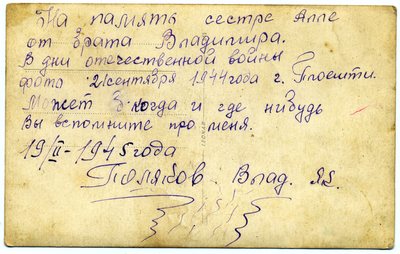 На память сестре Алле
от брата Владимира.
В дни отечественной войны
фото 21 сентября 1944 года г. Плоешти.
Может когда и где нибудь
Вы вспомните про меня.
19/II-1945 года
Поляков Влад. Як.